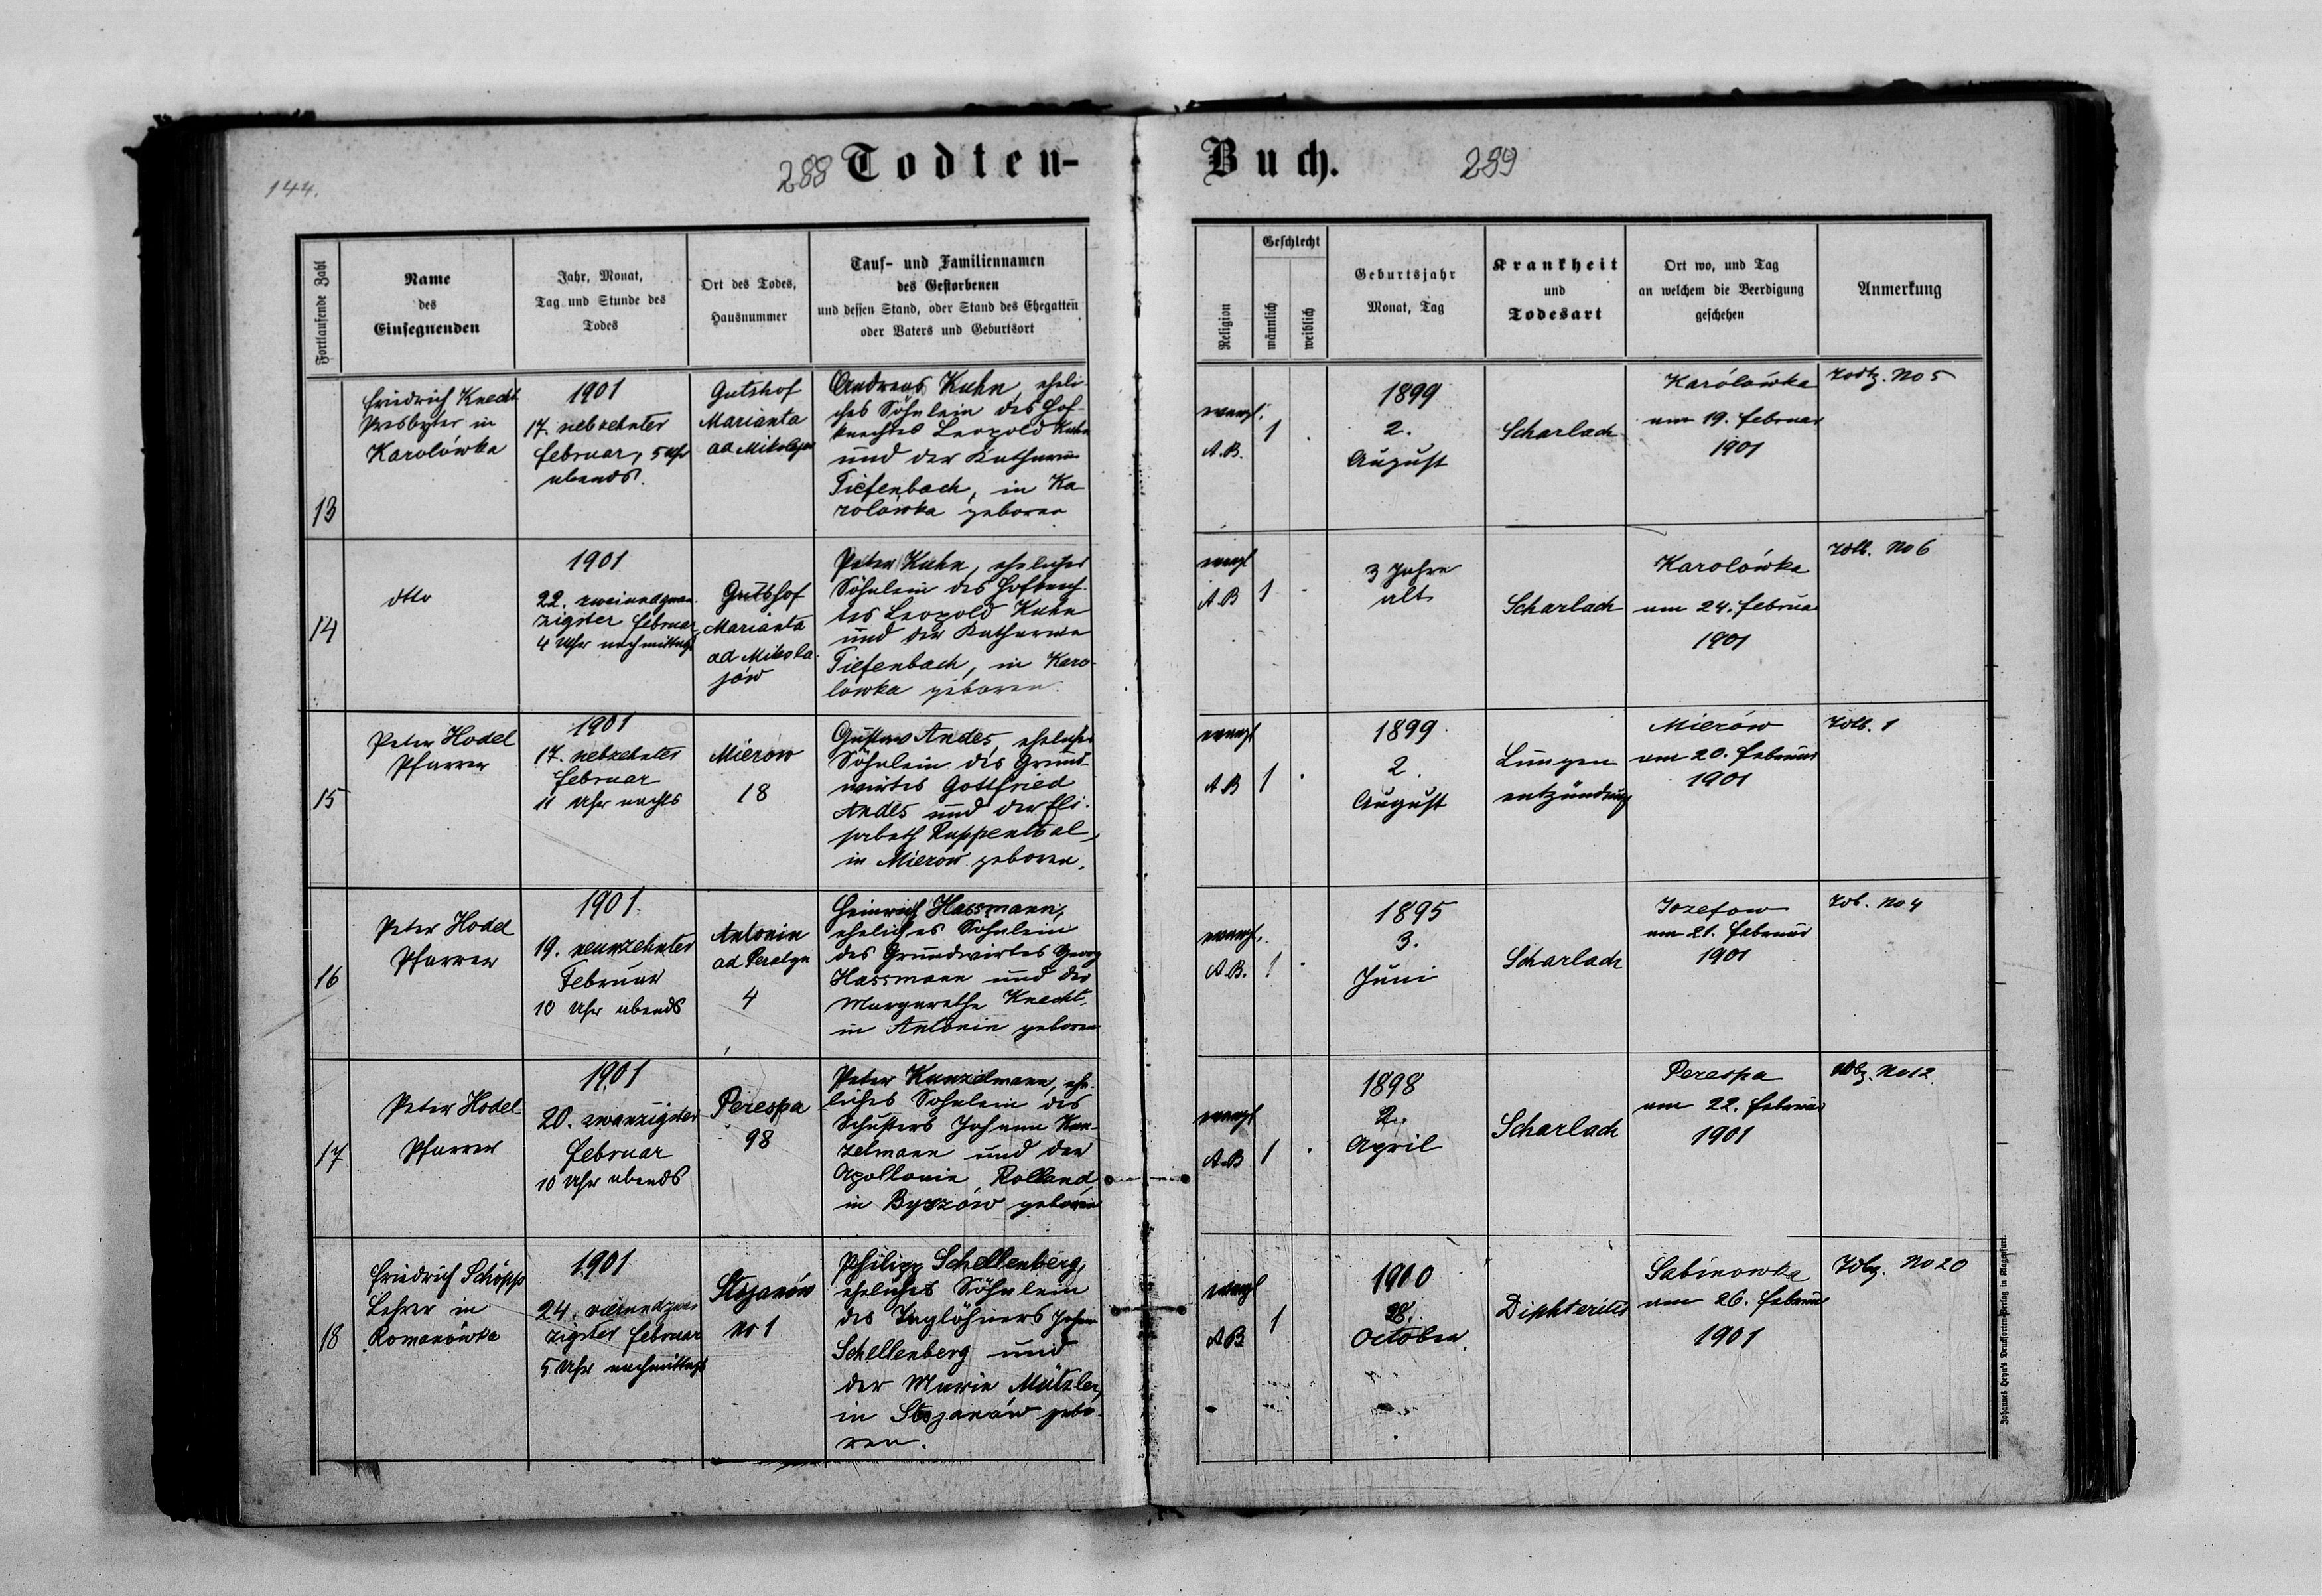 144.
288 Todten-
Fortlaufende Zahl
Name
des
Einsegnenden
Jahr, Monat,
Tag und Stunde des
Todes
Ort des Todes,
Hausnummer
Tauf- und Familiennamen
des Gestorbenen
und dessen Stand, oder Stand des Ehegatten
oder Vaters und Geburtsort
13
Friedrich Knecht
Presbyter in
Karolówka
1901
17. siebzehnter
Februar, 5 Uhr
abends.
Gutshof
Marianta
ad Mikolajow
Andreas Kuhn, eheli-
ches Söhnlein des Hof-
knechtes Leopold Kuhn
und der Katharina
Tiefenbach, in Ka
rolówka geboren
14
dtto
1901
22. zweiundzwan-
zigster Februar,
4 Uhr nachmittags
Gutshof
Marianta
ad Mikola-
jów
Peter Kuhn, eheliches
Söhnlein des Hofknech-
tes Leopold Kuhn
und der Katharina
Tiefenbach, in Karo-
lowka geboren.
15
Peter Hodel
Pfarrer
1901
17. siebzehnter
Februar
11 Uhr nachts
Mierow
18
Gustav Andes, eheliches
Söhnlein des Grund-
wirtes Gottfried
Andes und der Eli-
sabeth Ruppenthal,
in Mierow geboren.
16
Peter Hodel
Pfarrer
1901
19. neunzehnter
Februar
10 Uhr abends
Antonin
ad
4
Heinrich Hassmann,
eheliches Söhnlein
des Grundwirtes Georg
Hassmann und der
Margarethe Knecht,
in Antonin geboren
17
Peter Hodel
Pfarrer
1901
20. zwanzigster
Februar
10 Uhr abends
Perespa
98
Peter Kunzelmann, ehe-
liches Söhnlein des
Schusters Johann Kun-
zelmann und der
Apollonia Rolland,
in Byszów geboren
18
Friedrich Schöpp
Lehrer in
Romanówka
1901
24. vierundzwan
zigster Februar
5 Uhr nachmittags
Stojanów
No 1
Philipp Schellenberg,
eheliches Söhnlein
des Taglöhners Johann
Schellenberg und
der Maria Mützler,
in Stojanów gebo-
ren.
Buch. 289
Religion
Geschlecht
männlich
weiblich
Geburtsjahr
Monat, Tag
Krankheit
und
Todesart
Ort wo, und Tag
an welchem die Beerdigung
geschehen
Anmerkung
evangl.
A.B.
1
1899
2.
August
Scharlach
Karólówka
am 19. Februar
1901
No 5
evangl
A.B
1
3 Jahre
alt
Scharlach
Karolówka
am 24. Februar
1901
No 6
evangl
AB
1
1899
2.
August
Lungen
entzündung
Mierów
am 20. Februar
1901
1
evangl.
A.B.
1
1895
3.
Juni
Scharlach
Jozefow
am 21. Februar
1901
No 4
evangl
A.B
1
1898
2.
April
Scharlach
Perespa
am 22. Februar
1901
No 12.
evangl
AB
1
1900
28.
October.
Diphteritis
Sabinowka
am 26. Februar
1901
No 20
Johannes Heyn's Drucksorten-Verlag in Klagenfurt.